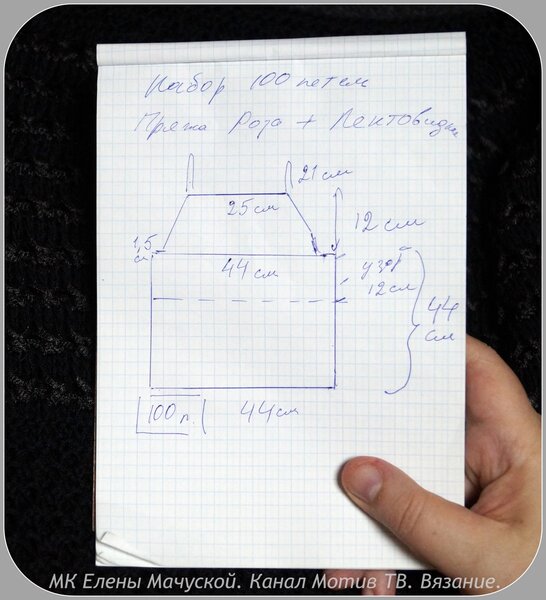 Набор 100 петель
Пряжа Роза + Лентовидн
21 см
25 см
12 см
1,5 см
44 см
узор
12 см
44 см
100 п.
44 см
МК Елены Мачуской. Канал Мотив ТВ. Вязание.